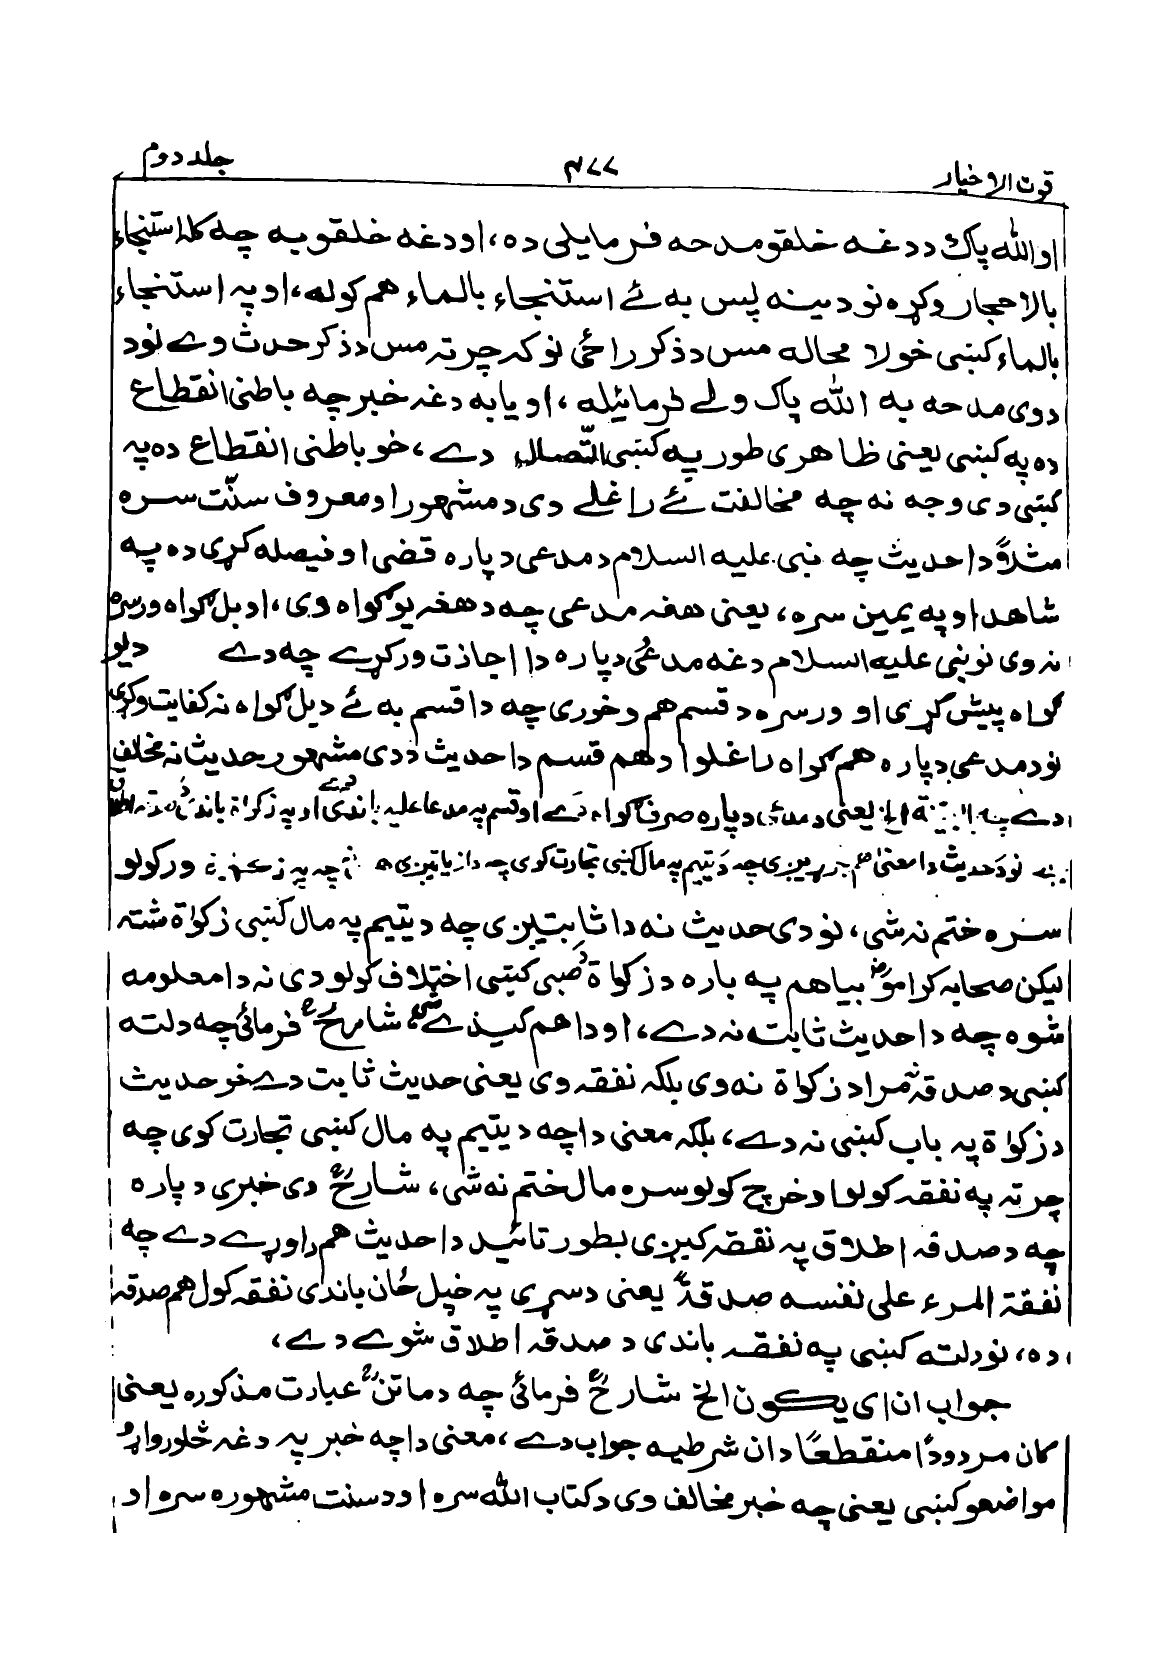 قوت الاخیار
۴۷۷
جلد دوم
او الله پاک د دغه خلقو مدحه فرمایلی ده، او دغه خلقو به چه کله استنجاء
بالاحجار وکړه نو د ینه پس به ئے استنجاء بالماء هم کوله، او په استنجاء
بالماء کښی خو لا محاله مس د ذکر راځی نو که چرته مس د ذکر حدث وے نو د
دوی مدحه به الله پاک ولے فرمائیله، او یا به دغه خبر چه باطنی انقطاع
ده په کښی یعنی ظاهری طور په کښی اتصال دے، خو باطنی انقطاع ده په
کښی دی وجه نه چه مخالفت ئے راغلے دی د مشهور او معروف سنّت سره
مثلاً دا حدیث چه نبی علیه السلام د مدعی دپاره قضی او فیصله کړی ده په
شاهد او په یمین سره، یعنی هغه مدعی چه د هغه یو گواه وی، او بل گواه ورسره
نه وی نو نبی علیه السلام دغه مدعی دپاره دا اجاذت ورکړے چه دے د یو
گواه پیش کړی او ورسره د قسم هم وخوری چه دا قسم به ئے د بل گواه نه کفایت وکړی
نو د مدعی دپاره هم گواه راغلو او هم قسم دا حدیث د دی مشهور حدیث نه مخالف
دے البینة الخ یعنی د مدعی دپاره صرف گواه دے او قسم په مدعا علیه باندی دے او په زکواة باندی
نو د حدیث دا معنی چه د یتیم په مال کښی تجارت کوی چه دا زیاتیږی چه په ورکولو
سره ختم نه شی، نو دی حدیث نه دا ثابتیږی چه د یتیم په مال کښی زکواة شته
لیکن صحابه کرامو بیا هم په باره د زکواة صبی کښی اختلاف کولو دی نه دا معلومه
شوه چه دا حدیث ثابت نه دے، او دا هم کیدے شی، شارح فرمائی چه دلته
کښی د صدقه نه مراد زکواة نه وی بلکه نفقه وی یعنی حدیث ثابت دے خو حدیث
د زکواة په باب کښی نه دے، بلکه معنی دا چه د یتیم په مال کښی تجارت کوی چه
چرته په نفقه کولو او خرچ کولو سره مال ختم نه شی، شارح دی خبری دپاره
چه د صدقه اطلاق په نفقه کیږی بطور تائید دا حدیث هم راوړے دے چه
نفقة المرء علی نفسه صدقة یعنی د سړی په خپل ځان باندی نفقه کول هم صدقه
ده، نو دلته کښی په نفقه باندی د صدقه اطلاق شوے دے،
جواب ان ای یکون الخ شارح فرمائی چه د ماتن عبارت مذکوره یعنی
کان مردودًا منقطعًا دا ان شرطیه جواب دے، معنی دا چه خبر په دغه څلورو واړو
مواضعو کښی یعنی چه خبر مخالف وی د کتاب الله سره او د سنت مشهوره سره او د